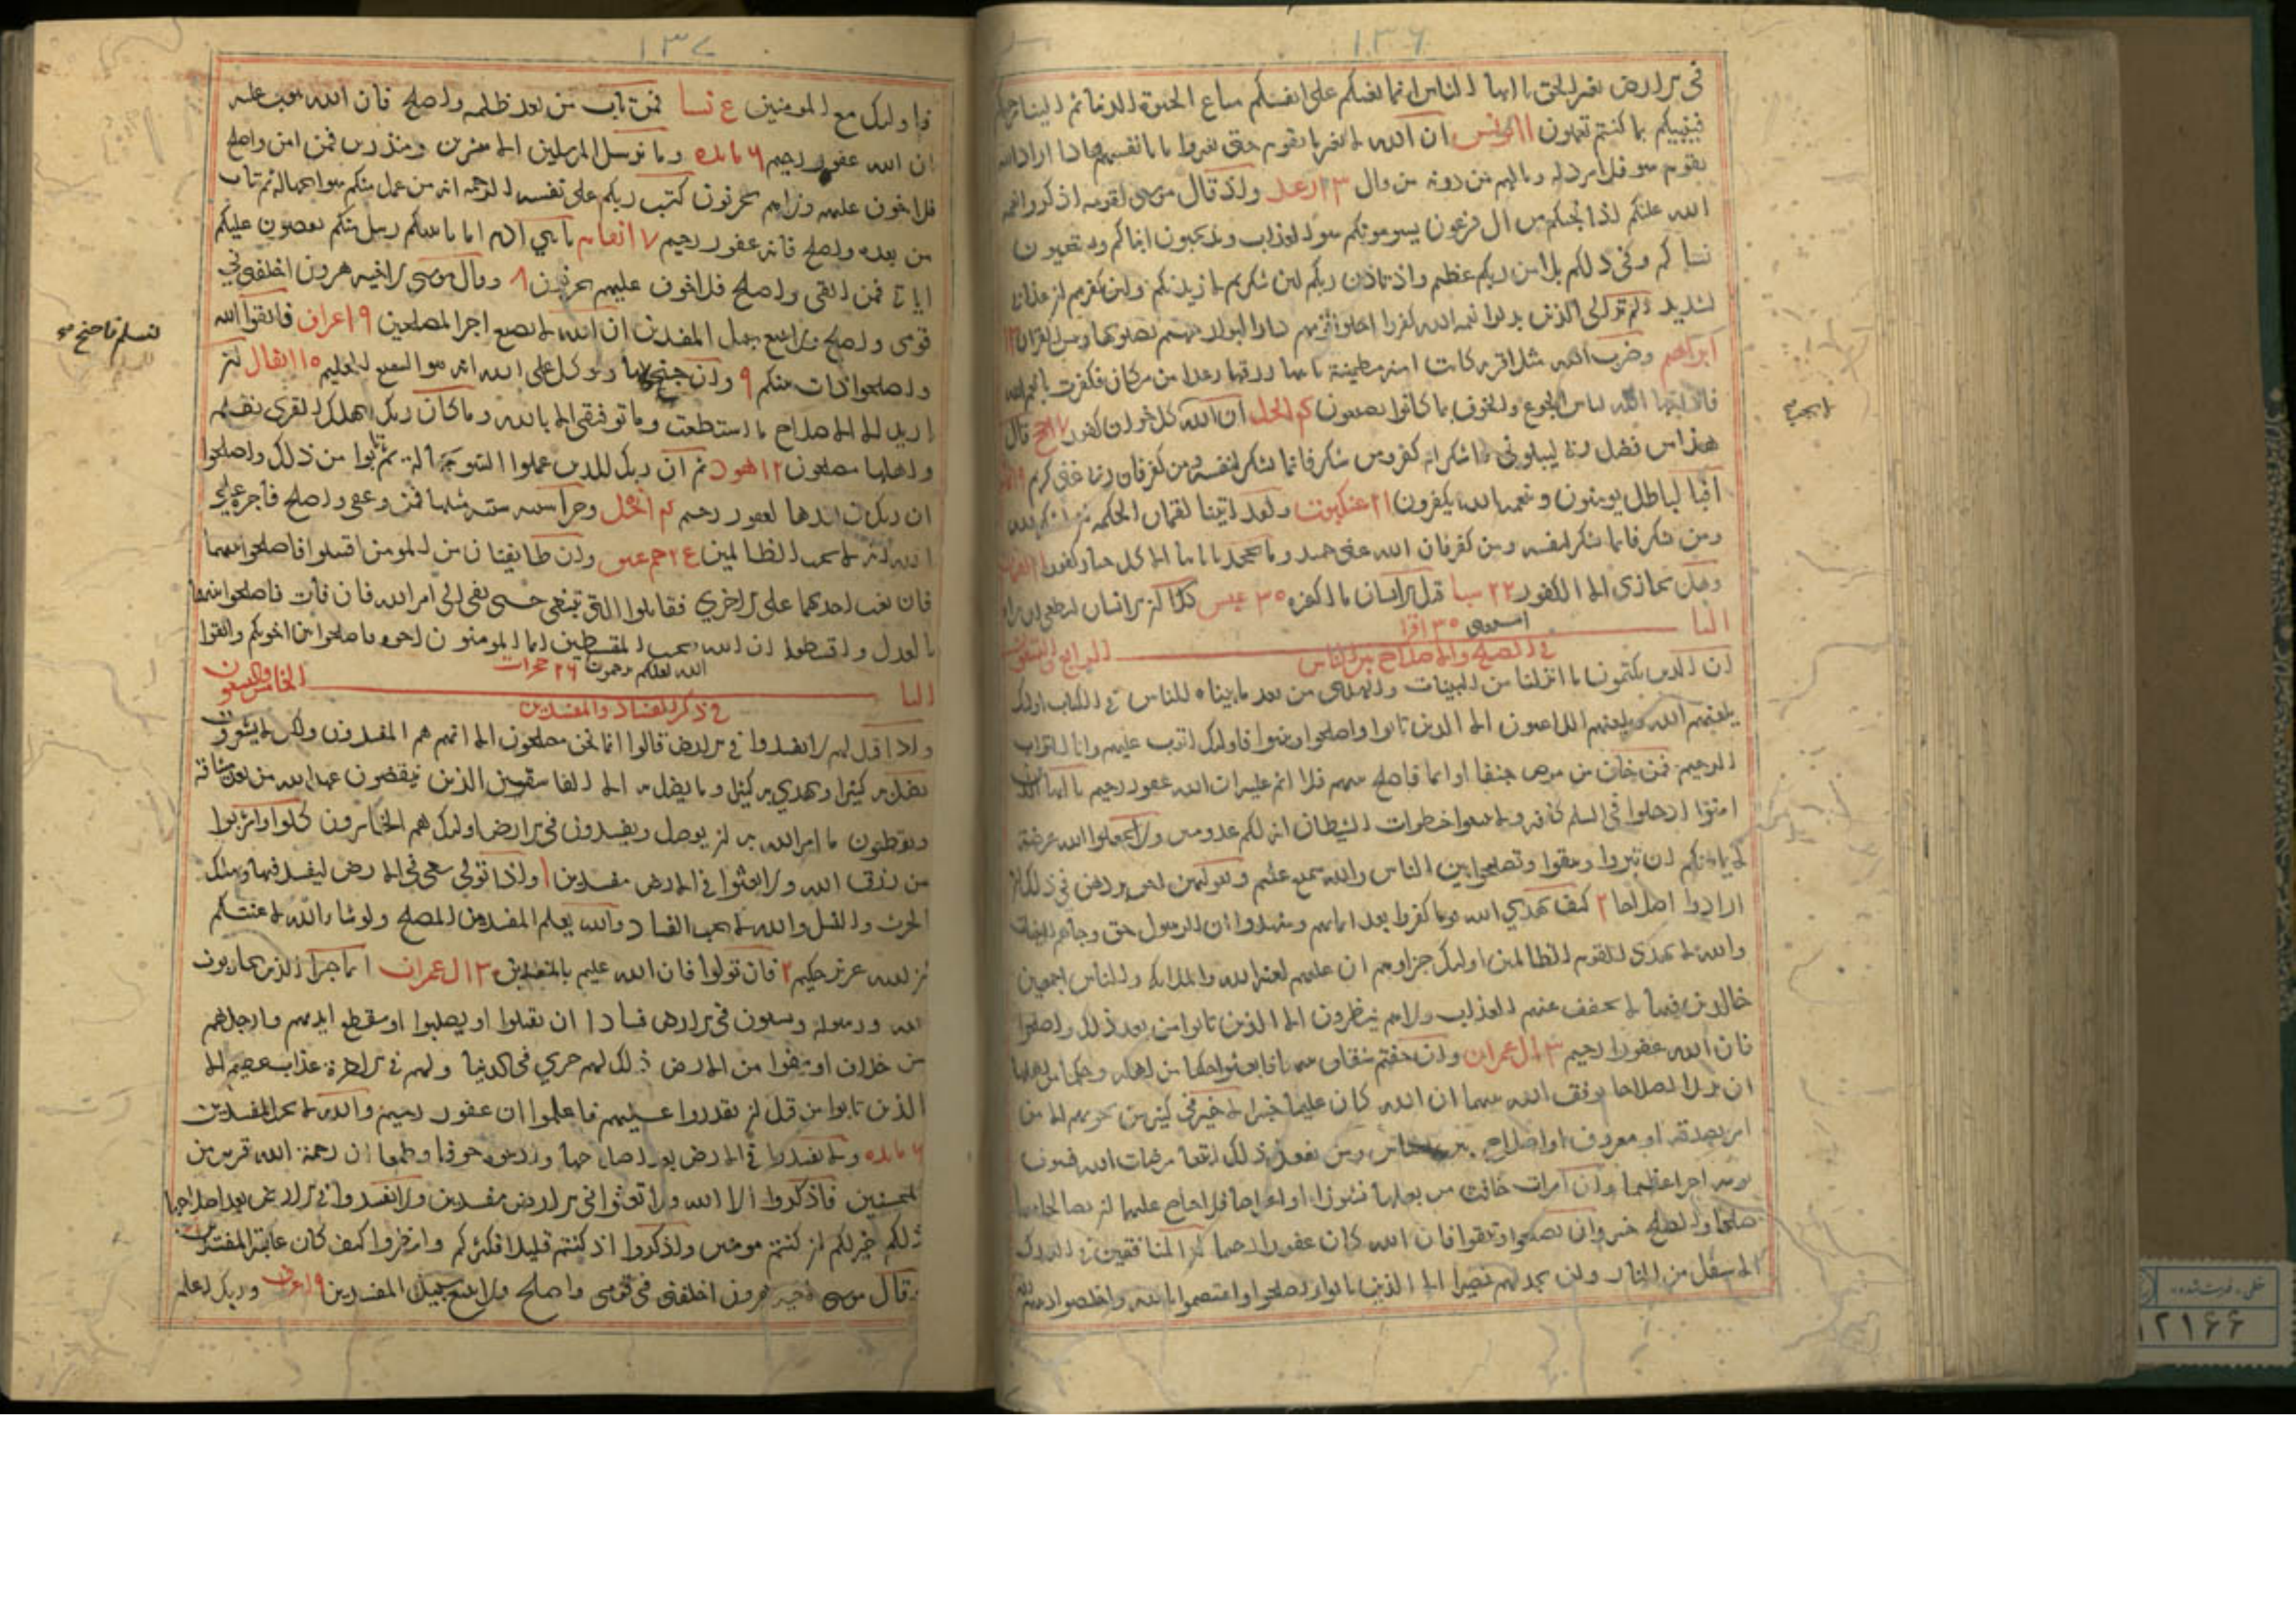 ١٣٦
في الارض بغير الحق يا ايها الناس انما بغيكم على انفسكم متاع الحيوة الدنيا ثم الينا مرجعكم
فينبيكم بما كنتم تعملون ١١ يونس ان الله لا يغير ما بقوم حتى يغيروا ما بانفسهم واذا اراد الله
بقوم سو فلا مرد له وما لهم من دونه من وال ١٣ رعد واذ قال موسى لقومه اذكروا نعمة
الله عليكم اذ انجيكم من ال فرعون يسومونكم سوء العذاب ويذبحون ابناكم ويستحيون
نساكم وفي ذلكم بلا من ربكم عظيم واذ تاذن ربكم لين شكرتم لازيدنكم ولين كفرتم ان عذابي
لشديد الم تر الى الذين بدلوا نعمة الله كفرا واحلوا قومهم دار البوار جهنم يصلونها وبيس القرار ١٣
ابراهيم وضرب الله مثلا قرية كانت امنة مطمينة ياتيها رزقها رغدا من مكان فكفرت بانعم الله
فاذاقها الله لباس الجوع والخوف بما كانوا يصنعون النحل ان الله كل خوان كفور ١٧ الحج قال
هذا من فضل ربي ليبلوني ااشكر ام اكفر ومن شكر فانما يشكر لنفسه ومن كفر فان ربي غني كريم
افبالباطل يومنون وبنعمة الله يكفرون ٢١ عنكبوت ولقد اتينا لقمان الحكمة ان اشكر لله
ومن شكر فانما يشكر لنفسه ومن كفر فان الله غني حميد وما يجحد باياتنا الا كل ختار كفور
وهل نجازي الا الكفور ٢٢ سبا قتل الانسان ما اكفره ٣٠ عبس كلا ان الانسان ليطغى ان راه
استغنى ٣٠ اقرا
البا الرابع والتسعون
في الصلح والاصلاح بين الناس
ان الذين يكتمون ما انزلنا من البينات والهدى من بعد ما بيناه للناس في الكتاب اوليك
يلعنهم الله ويلعنهم اللاعنون الا الذين تابوا واصلحوا وبينوا فاوليك اتوب عليهم وانا التواب
الرحيم فمن خاف من موص جنفا او اثما فاصلح بينهم فلا اثم عليه ان الله غفور رحيم يا ايها الذين
امنوا ادخلوا في السلم كافة ولا تتبعوا خطوات الشيطان انه لكم عدو مبين ولا تجعلوا الله عرضة
لايمانكم ان تبروا وتتقوا وتصلحوا بين الناس والله سميع عليم وبعولتهن احق بردهن في ذلك ان
ارادوا اصلاحا ٢ كيف يهدي الله قوما كفروا بعد ايمانهم وشهدوا ان الرسول حق وجاهم البينات
والله لا يهدي القوم الظالمين اوليك جزاوهم ان عليهم لعنة الله والملايكة والناس اجمعين
خالدين فيها لا يخفف عنهم العذاب ولا هم ينظرون الا الذين تابوا من بعد ذلك واصلحوا
فان الله غفور رحيم ٣ ال عمران وان خفتم شقاق بينهما فابعثوا حكما من اهله وحكما من اهلها
ان يريدا اصلاحا يوفق الله بينهما ان الله كان عليما خبيرا لا خير في كثير من نجويهم الا من
امر بصدقة او معروف او اصلاح بين الناس ومن يفعل ذلك ابتغا مرضات الله فسوف
نوتيه اجرا عظيما وان امرات خافت من بعلها نشوزا او اعراضا فلا جناح عليهما ان يصالحا بينهما
صلحا والصلح خير وان تصلحوا وتتقوا فان الله كان غفورا رحيما ان المنافقين في الدرك
الاسفل من النار ولن تجد لهم نصيرا الا الذين تابوا واصلحوا واعتصموا بالله واخلصوا دينهم لله
١٣٧
فاوليك مع المومنين ع نسا فمن تاب من بعد ظلمه واصلح فان الله يتوب عليه
ان الله غفور رحيم ٦ مايده وما نرسل المرسلين الا مبشرين ومنذرين فمن امن واصلح
فلا خوف عليهم ولا هم يحزنون كتب ربكم على نفسه الرحمة انه من عمل منكم سوا بجهالة ثم تاب
من بعده واصلح فانه غفور رحيم ٧ انعام يا بني ادم اما ياتينكم رسل منكم يقصون عليكم
اياتي فمن اتقى واصلح فلا خوف عليهم ولا هم يحزنون ٨ وقال موسى لاخيه هرون اخلفني في
قومي واصلح ولا تتبع سبيل المفسدين ان الله لا يضيع اجر المصلحين ٩ اعراف فاتقوا الله
واصلحوا ذات بينكم ٩ وان جنحوا لها وتوكل على الله انه هو السميع العليم ١٠ انفال ان
اريد الا الاصلاح ما استطعت وما توفيقي الا بالله وما كان ربك ليهلك القرى بظلم
واهلها مصلحون ١٢ هود ثم ان ربك للذين عملوا السو بجهالة ثم تابوا من ذلك واصلحوا
ان ربك من بعدها لغفور رحيم النحل وجزا سيية سيية مثلها فمن عفى واصلح فاجره على
الله انه لا يحب الظالمين حم عسق وان طايفتان من المومنين اقتتلوا فاصلحوا بينهما
فان بغت احديهما على الاخرى فقاتلوا التي تبغي حتى تفي الى امر الله فان فات فاصلحوا بينهما
بالعدل واقسطوا ان الله يحب المقسطين انما المومنون اخوة فاصلحوا بين اخويكم واتقوا
الله لعلكم ترحمون ٢٦ حجرات
البا الخامس والتسعون
في ذكر الفساد والمفسدين
واذا قيل لهم لا تفسدوا في الارض قالوا انما نحن مصلحون الا انهم هم المفسدون ولكن لا يشعرون
يضل به كثيرا ويهدي به كثيرا وما يضل به الا الفاسقين الذين ينقضون عهد الله من بعد ميثاقه
ويقطعون ما امر الله به ان يوصل ويفسدون في الارض اوليك هم الخاسرون كلوا واشربوا
من رزق الله ولا تعثوا في الارض مفسدين ١ واذا تولى سعى في الارض ليفسد فيها ويهلك
الحرث والنسل والله لا يحب الفساد والله يعلم المفسد من المصلح ولو شا الله لاعنتكم
ان الله عزيز حكيم ٢ فان تولوا فان الله عليم بالمفسدين ٣ ال عمران انما جزا الذين يحاربون
الله ورسوله ويسعون في الارض فسادا ان يقتلوا او يصلبوا او تقطع ايديهم وارجلهم
من خلاف او ينفوا من الارض ذلك لهم خزي في الدنيا ولهم في الاخرة عذاب عظيم الا
الذين تابوا من قبل ان تقدروا عليهم فاعلموا ان غفور رحيم والله لا يحب المفسدين
٦ مايده ولا تفسدوا في الارض بعد اصلاحها وادعوه خوفا وطمعا ان رحمة الله قريب من
المحسنين فاذكروا الا الله ولا تعثوا في الارض مفسدين ولا تفسدوا في الارض بعد اصلاحها
ذلكم خير لكم ان كنتم مومنين واذكروا اذ كنتم قليلا فكثركم وانظروا كيف كان عاقبة المفسدين
وقال موسى لاخيه هرون اخلفني في قومي واصلح ولا تتبع سبيل المفسدين ٩ اعراف وربك اعلم
للسلم فاجنح
لا يحب
خطی - فهرست شده
١٢١٦٦